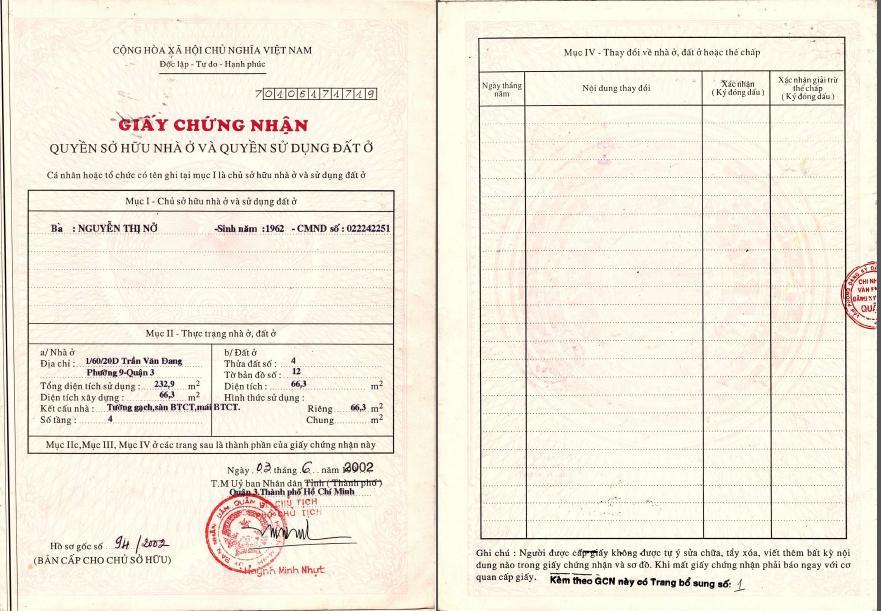 CỘNG HÒA XÃ HỘI CHỦ NGHĨA VIỆT NAM
Độc lập - Tự do - Hạnh phúc
7010517171719
GIẤY CHỨNG NHẬN
QUYỀN SỞ HỮU NHÀ Ở VÀ QUYỀN SỬ DỤNG ĐẤT Ở
Cá nhân hoặc tổ chức có tên ghi tại mục I là chủ sở hữu nhà ở và sử dụng đất ở
Mục I - Chủ sở hữu nhà ở và sử dụng đất ở
Bà : NGUYỄN THỊ NỞ -Sinh năm :1962 - CMND số : 022242251
Mục II - Thực trạng nhà ở, đất ở
a/ Nhà ở
Địa chỉ : 1/60/20D Trần Văn Đang
Phường 9-Quận 3
Tổng diện tích sử dụng : 232,9 m2
Diện tích xây dựng : 66,3 m2
Kết cấu nhà : Tường gạch,sàn BTCT,mái BTCT.
Số tầng : 4
b/ Đất ở
Thửa đất số : 4
Tờ bản đồ số : 12
Diện tích : 66,3 m2
Hình thức sử dụng :
Riêng 66,3 m2
Chung m2
Mục IIc,Mục III, Mục IV ở các trang sau là thành phần của giấy chứng nhận này
Ngày 03 tháng 6 năm 2002
T.M Uỷ ban Nhân dân Tỉnh ( Thành phố )
Quận 3.Thành phố Hồ Chí Minh
CHỦ TỊCH
CHỦ TỊCH
Huỳnh Minh Nhựt
Hồ sơ gốc số 94/2002
(BẢN CẤP CHO CHỦ SỞ HỮU)
Mục IV - Thay đổi về nhà ở, đất ở hoặc thế chấp
Ngày tháng năm
Nội dung thay đổi
Xác nhận
( Ký đóng dấu )
Xác nhận giải trừ
thế chấp
( Ký đóng dấu )
CHI NH
VĂN P
ĐĂNG KÝ
QUẬ
Ghi chú : Người được cấp giấy không được tự ý sửa chữa, tẩy xóa, viết thêm bất kỳ nội
dung nào trong giấy chứng nhận và sơ đồ. Khi mất giấy chứng nhận phải báo ngay với cơ
quan cấp giấy. Kèm theo GCN này có Trang bổ sung số: 1